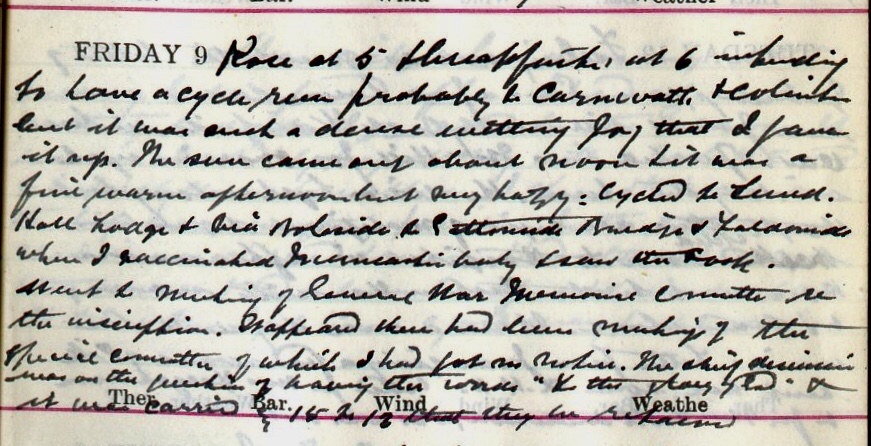 Bar. Wind Weather
FRIDAY 9 Rose at 5 & breakfasted at 6 intending
to have a cycle run probably to Carnwath & Colinton
but it was such a dense wetting fog that I gave
it up. The sun came out about noon & it was a
fine warm afternoon but very hazy: Cycled to Sund.
Hall Lodge & via Boleside to Bridge & Faldonside
where I vaccinated baby & saw the Cook.
Went to meeting of General War Memorial Committee re
the inscription. It appeared there had been meeting of the
special committee of which I had got no notice. The chief discussion
was on the question of having the words "To the glory of God" &
it was carried by 15 to 12 that they be retained
Ther. Bar. Wind Weathe